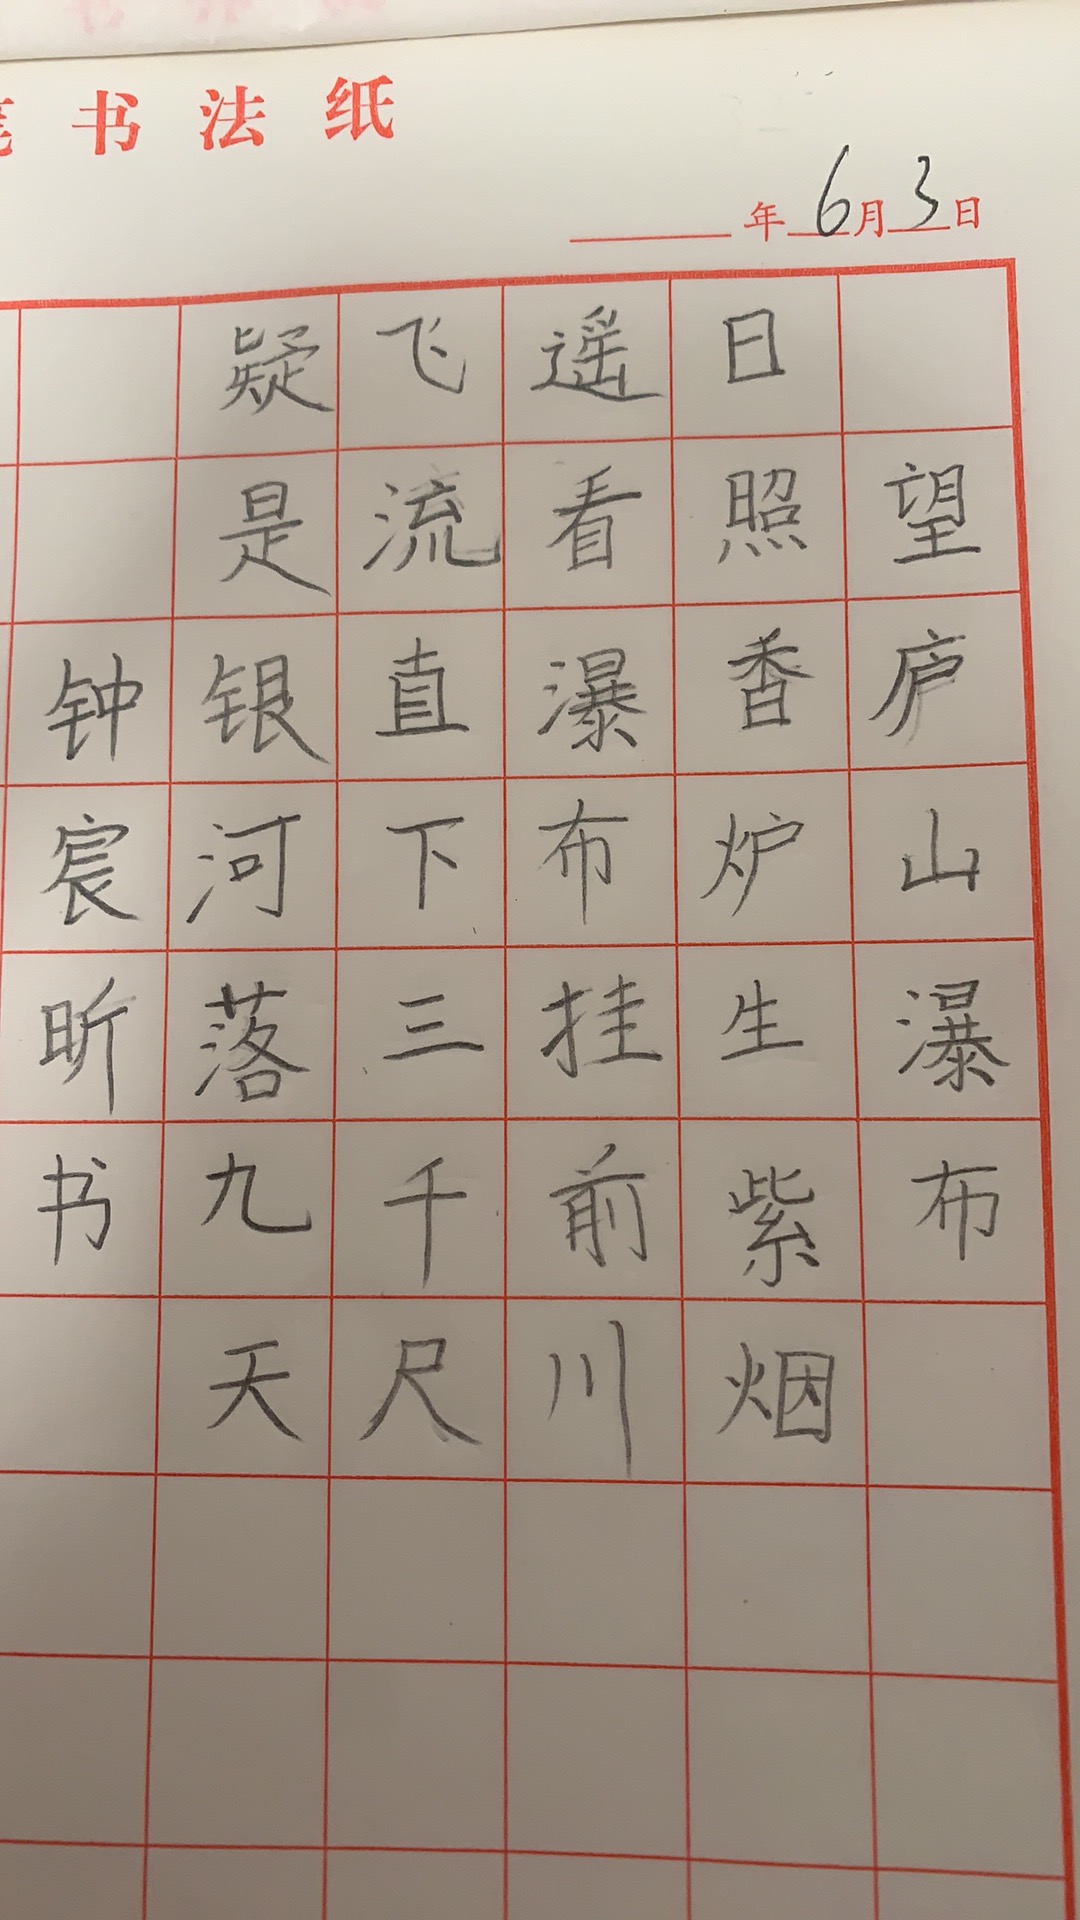 书法纸
年6月3日
望庐山瀑布
日照香炉生紫烟
遥看瀑布挂前川
飞流直下三千尺
疑是银河落九天
钟宸昕书